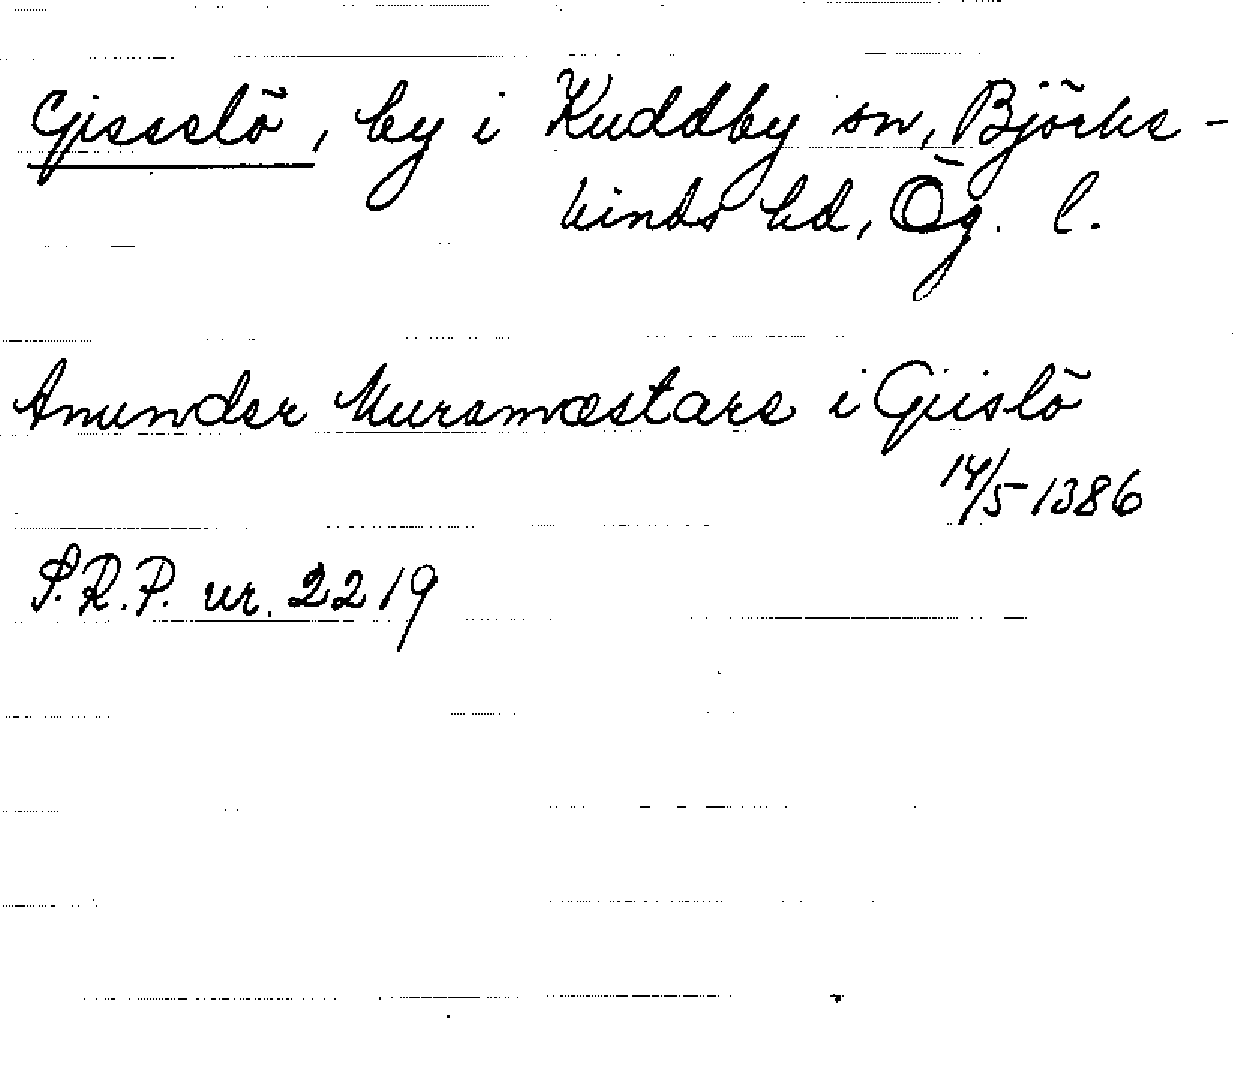 Gisselö, by i Kuddby sn, Björke-
kinds hd, Ög. l.
Anunder Muramæstare i Giislö
14/5 1386
S.R.P. nr. 2219